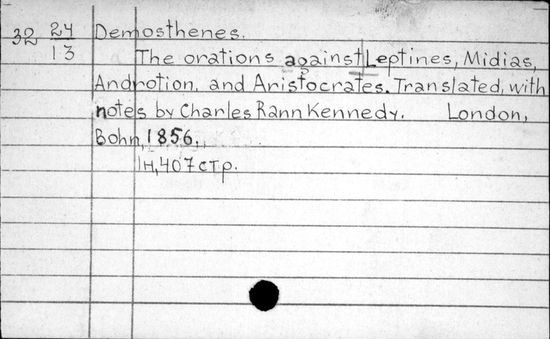 32 24/13 Demosthenes.
The orations against Leptines, Midias,
Androtion, and Aristocrates. Translated, with
notes by Charles Rann Kennedy. London,
Bohn, 1856.
1н, 407 стр.